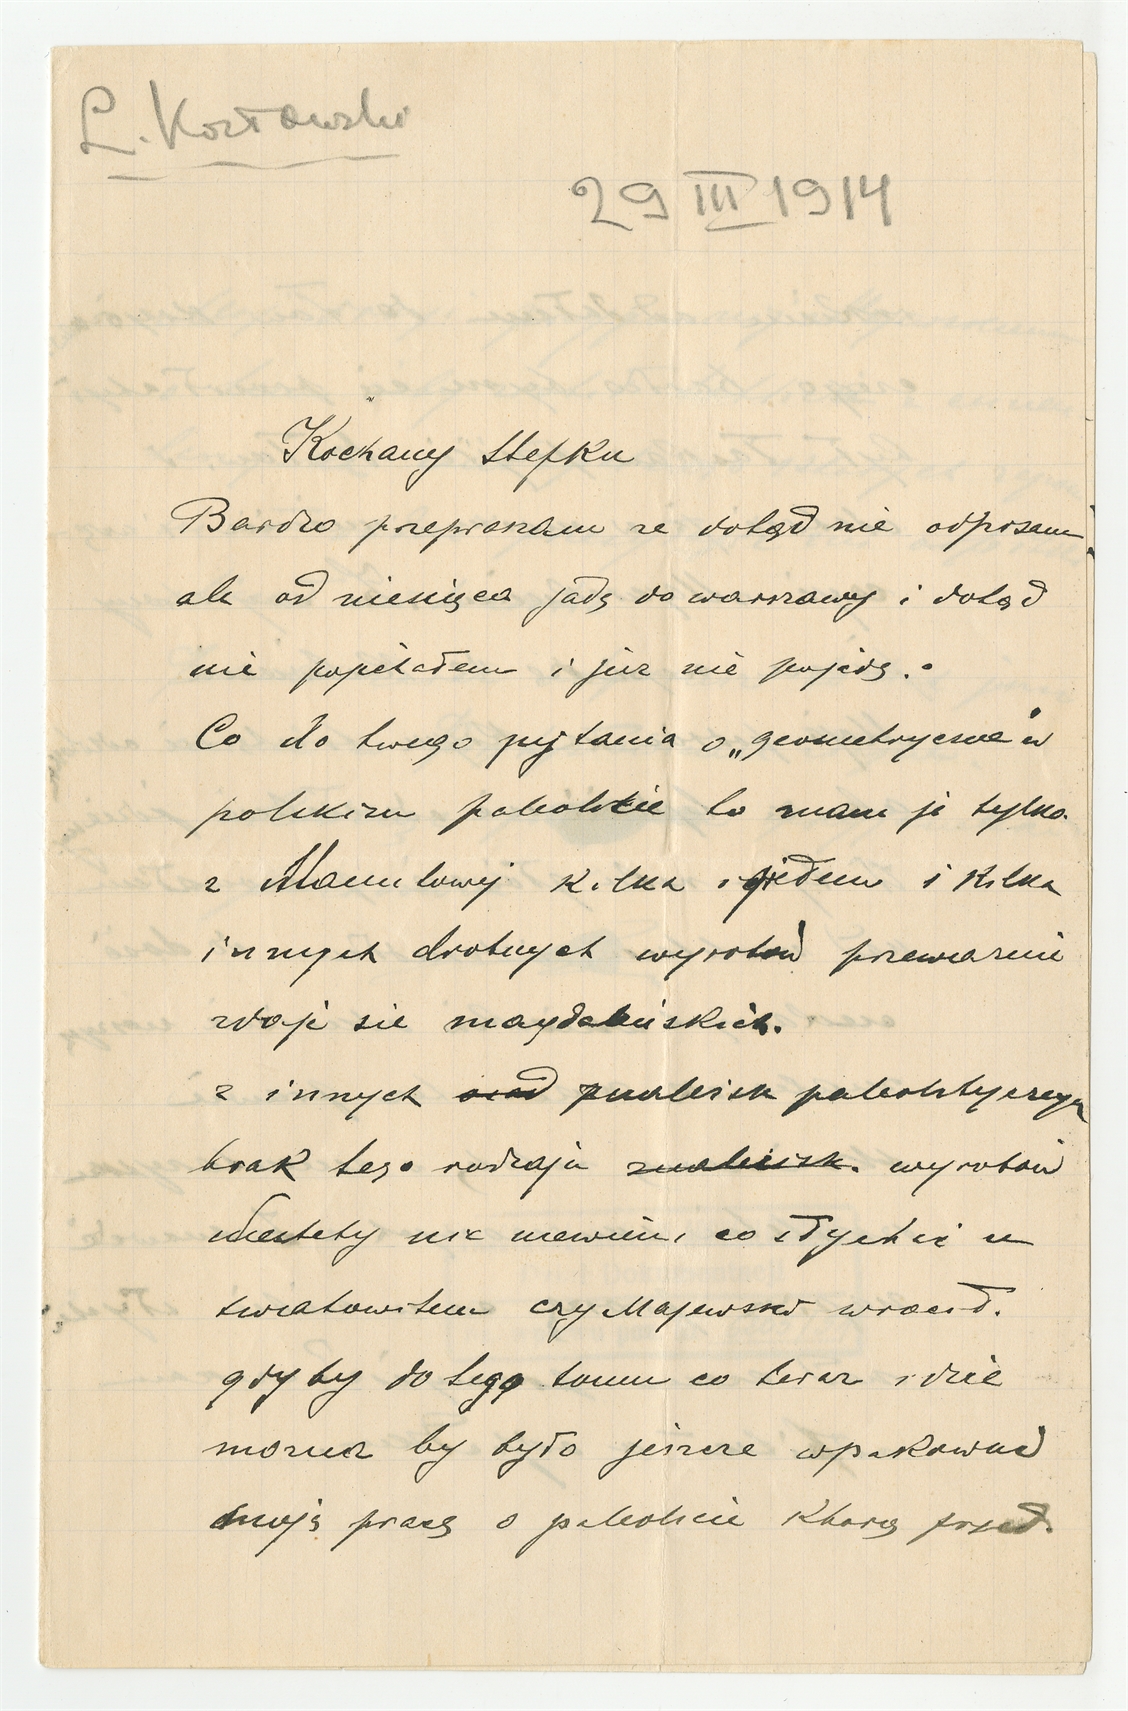 L. Kozłowski
29 III 1914
Kochany Stefku
Bardzo przepraszam ze dotąd nie odpisałem
ale od miesiąca jadę do warszawy i dotąd
nie pojechałem i juz nie pojadę.
Co do twego pytania o „geometryczne" w
polskim paleolicie to mam je tylko
z Mamutowej kilka i kilka
innych drobnych wyrobów przewaznie
zdaje sie magdaleńskich.
z innych znalezisk paleolitycznych
brak tego rodzaju znalezisk. wyrobów
Niestety nic niewiem, co słychać u
swiatowitem czy Majewski wrocił.
gdyby do tego tomu co teraz idzie
mozna by było jeszcze wpakować
moją pracę o paleolicie którą przed